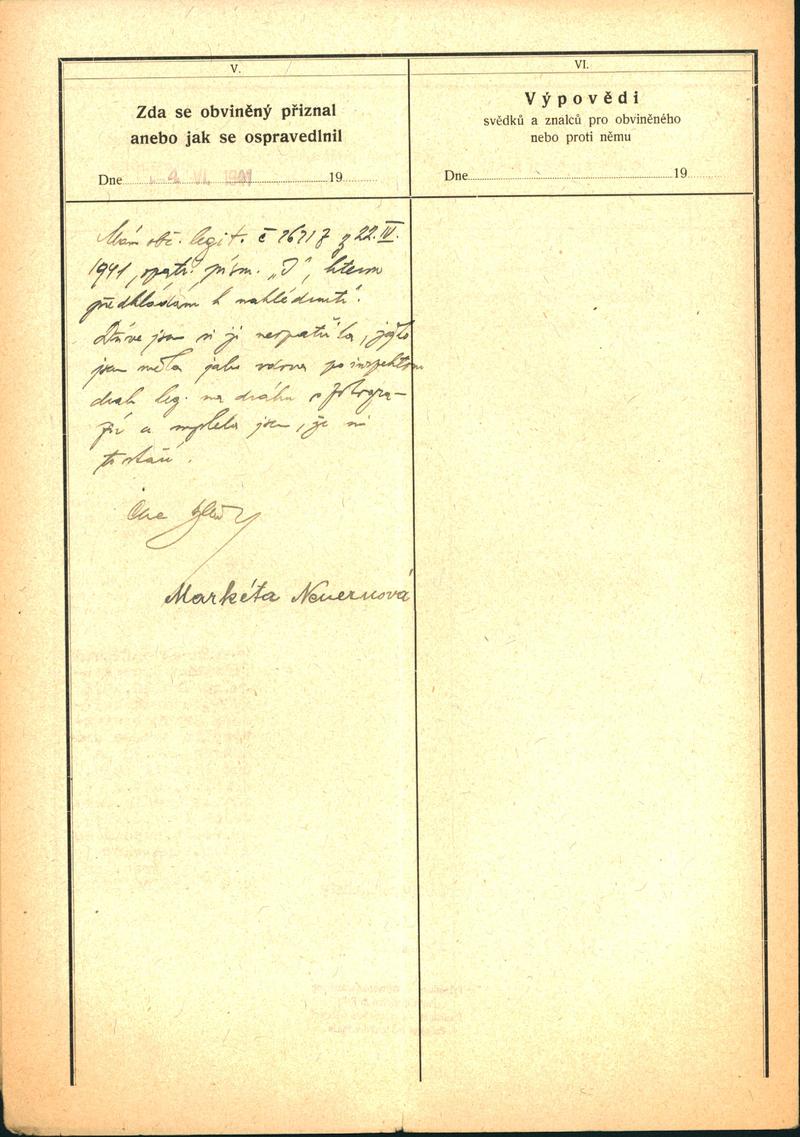 V.
Zda se obviněný přiznal
anebo jak se ospravedlnil
Dne 4. VI. 1941 19
Mám obč. legit. č 16717 z 22.IV.
1941, opatř. písm. „J", kterou
předkládám k nahlédnutí.
Dříve jsem si ji neopatřila, ježto
jsem měla jako vdova po inspektoru
drah leg. na dráhu s fotogra-
fií a myslela jsem, že mi
to stačí.
Markéta Neuernová
VI.
Výpovědi
svědků a znalců pro obviněného
nebo proti němu
Dne 19